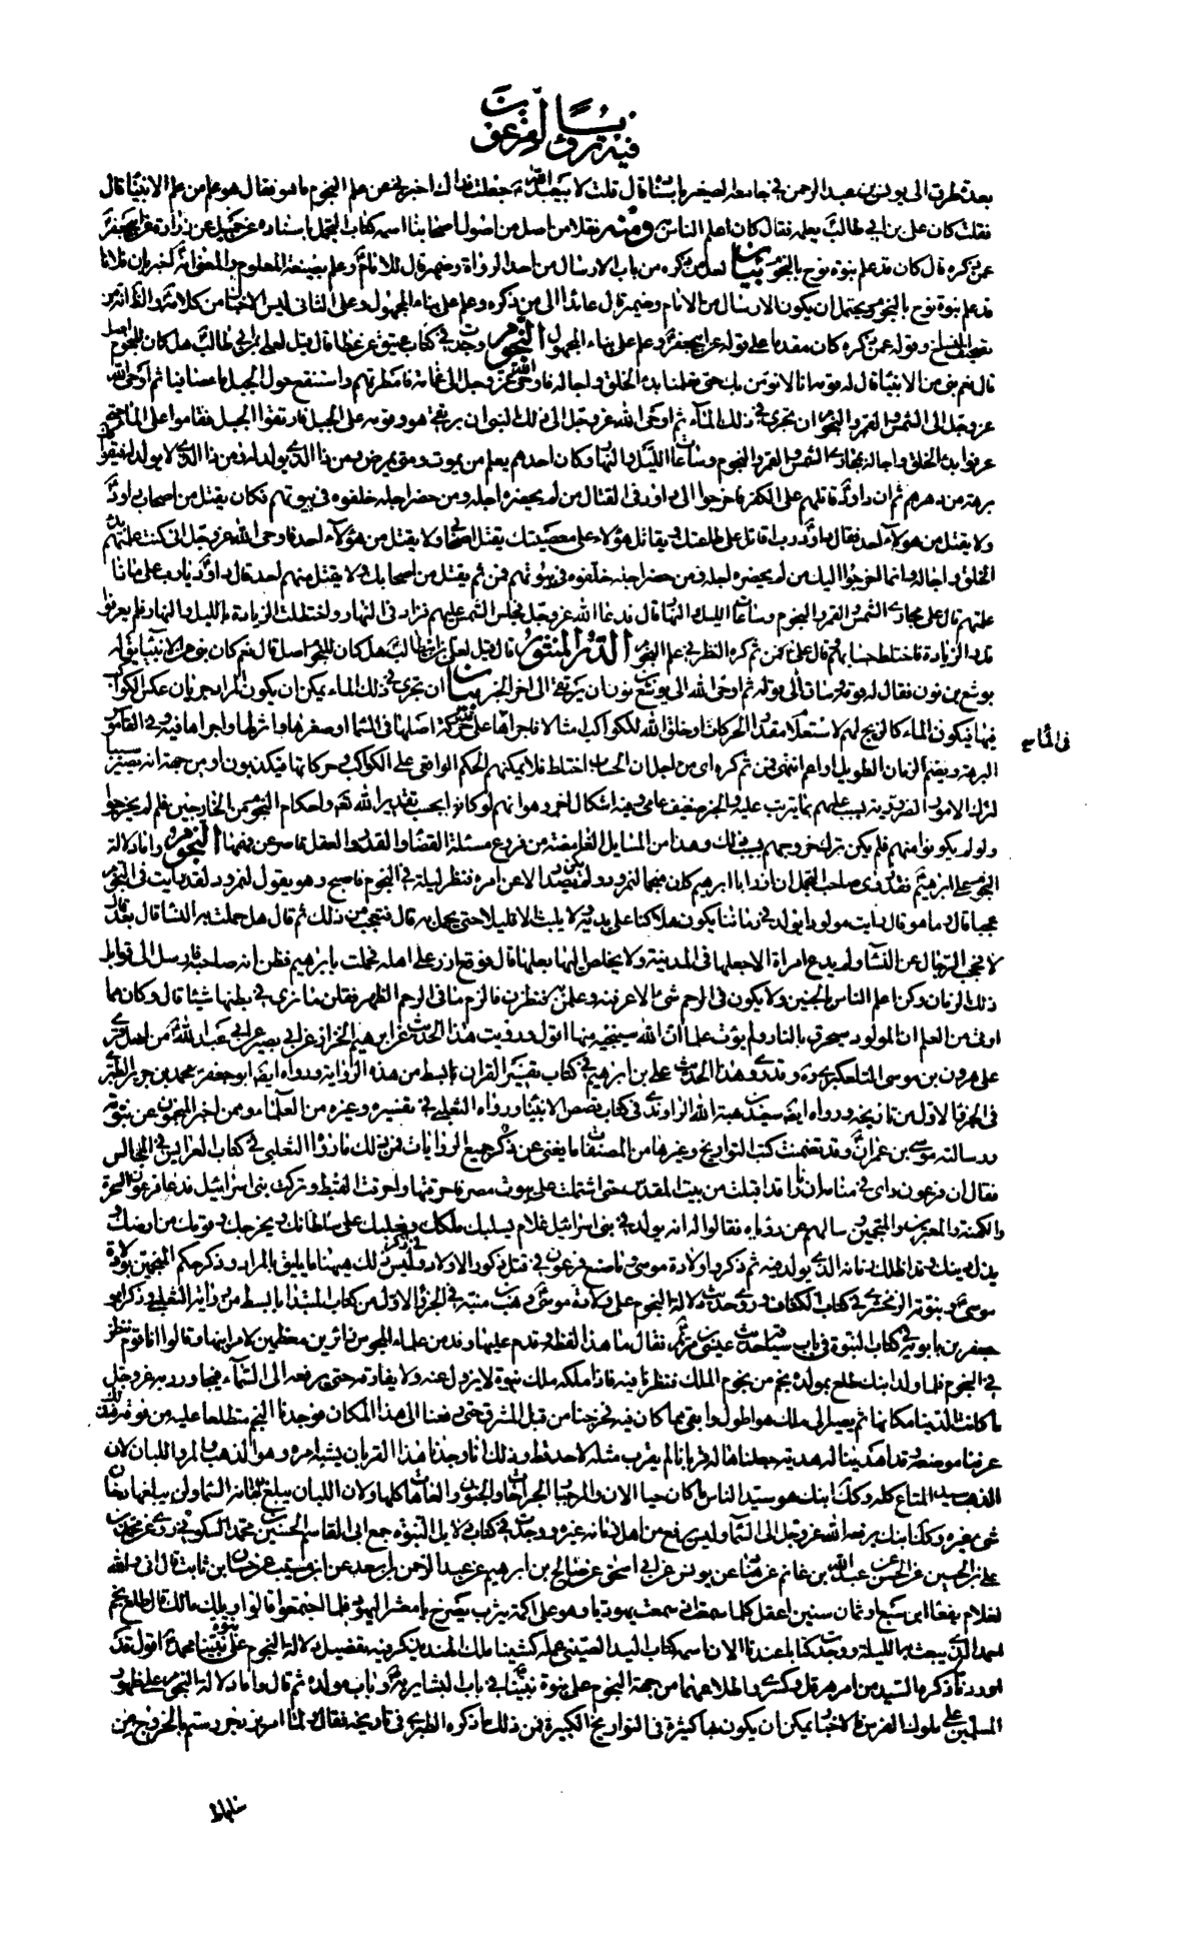 فيه رؤيا لفرعون
بعدة طرق الى يونس بن عبد الرحمن في جامعه الصغير باسناده قال قلت لابيعبد الله ع جعلت فداك اخبرني عن علم النجوم ما هو فقال هو علم من علم الانبياء قال
فقلت كان علي بن ابي طالب يعلمه فقال كان اعلم الناس به ومنه نقلا من اصل من اصول اصحابنا اسمه كتاب التجمل باسناده عن جميل عن زرارة عن ابيجعفر
عمن ذكره قال كان قد علم نبوة نوح بالنجوم بيان لعل من ذكره من باب الارسال من احد الرواة وضمير قال للامام وعلم بصيغة المعلوم والمعنى انه اخبر ان فلانا
قد علم نبوة نوح بالنجوم ويحتمل ان يكون الارسال من الامام وضمير قال عائدا الى من ذكره وعلم على بناء المجهول وعلى الثاني ليس الاختصار من كلامه والظاهر من
وقوله عمن ذكره كان مقدما على قوله عن ابيجعفر وعلم على بناء المجهول النجوم وجدت في كتاب عتيق عن عطا قال قيل لعلي بن ابي طالب هل كان للنجوم اصل
قال نعم نبي من الانبياء قال له قومه انا لا نؤمن بك حتى تعلمنا بدء الخلق واجاله فاوحى الله عز وجل الى غمامة فامطرتهم واستنقع حول الجبل ماء صافيا ثم اوحى الله
عز وجل الى الشمس والقمر والنجوم ان تجري في ذلك الماء ثم اوحى الله عز وجل الى ذلك النبي ان يرتقي هو وقومه على الجبل فارتقوا الجبل فقاموا على الماء حتى
عرفوا بدء الخلق واجاله بمجاري الشمس والقمر والنجوم وساعات الليل والنهار وكان احدهم يعلم متى يموت ومتى يمرض ومن ذا الذي يولد له ومن ذا الذي لا يولد له فبقوا كذلك
برهة من دهرهم ثم ان داود قاتلهم على الكفر فاخرجوا الى داود في القتال من لم يحضره اجله ومن حضر اجله خلفوه في بيوتهم فكان يقتل من اصحاب داود
ولا يقتل من هؤلاء احد فقال داود رب اقاتل على طاعتك ويقاتل هؤلاء على معصيتك يقتل اصحابي ولا يقتل من هؤلاء احد فاوحى الله عز وجل اني كنت علمتهم بدء
الخلق واجاله وانما اخرجوا اليك من لم يحضره اجله ومن حضر اجله خلفوه في بيوتهم فمن ثم يقتل من اصحابك ولا يقتل منهم احد قال داود يا رب على ماذا
علمتهم قال على مجاري الشمس والقمر والنجوم وساعات الليل والنهار قال فدعا الله عز وجل فحبس الشمس عليهم فزاد في النهار واختلطت الزيادة بالليل والنهار فلم يعرفوا
قدر الزيادة فاختلط حسابهم قال علي ع فمن ثم كره النظر في علم النجوم الدر المنثور قال قيل لعلي بن ابيطالب هل كان للنجوم اصل قال نعم كان نبي من الانبياء يقال له
يوشع بن نون فقال له قومه وساق الى قوله ثم اوحى الله الى يوشع بن نون ان يرتقي الى اخر الخبر بيان ان تجري في ذلك الماء يمكن ان يكون المراد جريان عكس الكواكب
فيها فيكون الماء كالزيج لهم لاستعلام مقدار الحركات او خلق الله للكواكب امثالا فاجراها على نحو حركة اصلها في السماء او صغرها وانزلها واجراها فيه وفي القاموس
البرهة ويضم الزمان الطويل او اعم انتهى فمن ثم كره اي من اجل ان الحساب اختلط فلا يمكنهم الحكم الواقعي على الكواكب وحركاتها فيكذبون او من جهة انه يصير سببا
لترك الامور الضرورية بسبب علمهم بما يترتب عليه والخبر ضعيف عامي وفيه اشكال اخر وهو انهم لو كانوا بحسب تقدير الله تعالى واحكام النجوم من الخارجين فلم لم يخرجوا
ولو لم يكونوا منهم فلم يكن ترك خروجهم بسبب ذلك وهذا من المسايل الغامضة من فروع مسئلة القضاء والقدر والعقل قاصر عن فهمها النجوم واما دلالة
النجوم على ابراهيم فقد روى صاحب التجمل ان ازر ابا ابرهيم كان منجما لنمرود ولم يكن يصدر الا عن امره فنظر ليلة في النجوم فاصبح وهو يقول لنمرود لقد رايت في النجوم
عجبا قال وما هو قال رايت مولودا يولد في زماننا يكون هلاكنا على يديه ولا يلبث الا قليلا حتى يحمل به قال فتعجب من ذلك ثم قال هل حملت به النساء قال بعد قال
لا فحجب الرجال عن النساء ولم يدع امراة الا جعلها في المدينة ولا يخلص اليها بعلها قال فوقع ازر على اهله فحملت بابراهيم فظن انه صاحبه فارسل الى قوابل
ذلك الزمان وكن اعلم الناس بالجنين ولا يكون في الرحم شيء الا عرفنه وعلمن به فنظرن فالزم ما في الرحم الظهر فقلن ما نرى في بطنها شيئا قال وكان مما
اوتي من العلم ان المولود سيحرق بالنار ولم يؤت علما ان الله سينجيه منها اقول ورويت هذا الحديث عن ابرهيم الخزاز عن ابي بصير عن ابي عبد الله من اصل قرئ
على هرون بن موسى التلعكبري ره وقد روى هذا الحديث علي بن ابرهيم في كتاب تفسير القران بابسط من هذه الرواية ورواه ايضا ابو جعفر محمد بن جرير الطبري
في الجزء الاول من تاريخه ورواه ايضا سعيد بن هبة الله الراوندي في كتاب قصص الانبياء ورواه الثعلبي في تفسيره وغيره من العلماء وممن اخبر المنجمون عن نبوته
ورسالته موسى بن عمران وقد تضمنت كتب التواريخ وغيرها من المصنفات ما يغني عن ذكر جميع الروايات فمن ذلك ما رواه الثعلبي في كتاب العرايس في المجالس
فقال ان فرعون راى في منامه ان نارا قد اقبلت من بيت المقدس حتى اشتملت على بيوت مصر فاحرقتها واحرقت القبط وتركت بني اسرائيل فدعا فرعون السحرة
والكهنة والمعبرين والمنجمين وسالهم عن رؤياه فقالوا له انه يولد في بني اسرائيل غلام يسلبك ملكك ويغلبك على سلطانك ويخرجك وقومك من ارضك و
يذل دينك وقد اظلك زمانه الذي يولد فيه ثم ذكر ولادة موسى وما صنع فرعون في قتل ذكور الاولاد وليس في ذكر ذلك ههنا ما يليق بالمراد وذكر حكم المنجمين بولادة
موسى ع ونبوته الزمخشري في كتاب الكشاف وروى حديث دلالة النجوم على ولادة موسى وهب بن منبه في الجزء الاول من كتاب المبتدا بابسط من رواية الثعلبي وذكر ابو
جعفر بن بابويه في كتاب النبوة في باب سياقة حديث عيسى بن مريم فقال ما هذا لفظه وقدم عليها وفد من علماء المجوس زائرين معظمين لامر ابنها وقالوا انا قوم ننظر
في النجوم فلما ولد ابنك طلع بمولده نجم من نجوم الملك فنظرنا فيه فاذا ملكه ملك نبوة لا يزول عنه ولا يفارقه حتى يرفعه الى السماء فيجاور ربه عز وجل
ما كانت الدنيا مكانها ثم يصير الى ملك هو اطول وابقى مما كان فيه فخرجنا من قبل المشرق حتى دفعنا الى هذا المكان فوجدنا النجم متطلعا عليه من فوقه فبذلك
عرفنا موضعه وقد اهدينا له هدية جعلناها له قربانا لم يقرب مثله لاحد قط وذلك انا وجدنا هذا القربان يشبه امره وهو الذهب والمر واللبان لان
الذهب سيد المتاع كله وكذلك ابنك هو سيد الناس ما كان حيا الان والمر جبار الجراحات والجنون والعاهات كلها ولان اللبان يبلغ دخانه السماء ولن يبلغها دخان
شيء غيره وكذلك ابنك يرفعه الله عز وجل الى السماء وليس يرفع من اهل زمانه غيره ووجدت في كتاب دلايل النبوة جمع ابي القاسم الحسين بن محمد السكوني
علي بن الحسين عن الحسن عن عبد الله بن غانم عن هناد عن يونس عن ابي اسحق عن صالح بن ابرهيم عن عبد الرحمن بن اسعد عن ابن مسيب عن حسان بن ثابت قال اني والله
لغلام يفعة ابن سبع او ثمان سنين اعقل كلما سمعت اذ سمعت يهوديا وهو على اكمة يثرب يصرخ يا معشر اليهود فلما اجتمعوا قالوا ويلك ما لك قال طلع نجم
احمد الذي يبعث به الليلة ووجدت كتابا عندنا الان اسمه كتاب اليد الصيني عمله كشينا ملك الهند يذكر فيه تفصيل دلالة النجوم على نبوة نبينا محمد ص اقول قد
اوردنا ما ذكره السيد من امر هرقل وكسرى واطلاعهما من جهة النجوم على نبوة نبينا في باب البشاير به وباب مولده ثم قال واما دلالة النجوم على ظهور
المسلمين على ملوك الفرس فالاخبار يمكن ان يكون بها كثيرة في التواريخ الكبيرة فمن ذلك ما ذكره الطبري في تاريخه فقال لما امر يزدجرد رستم بالخروج من
في الماء
ساباط